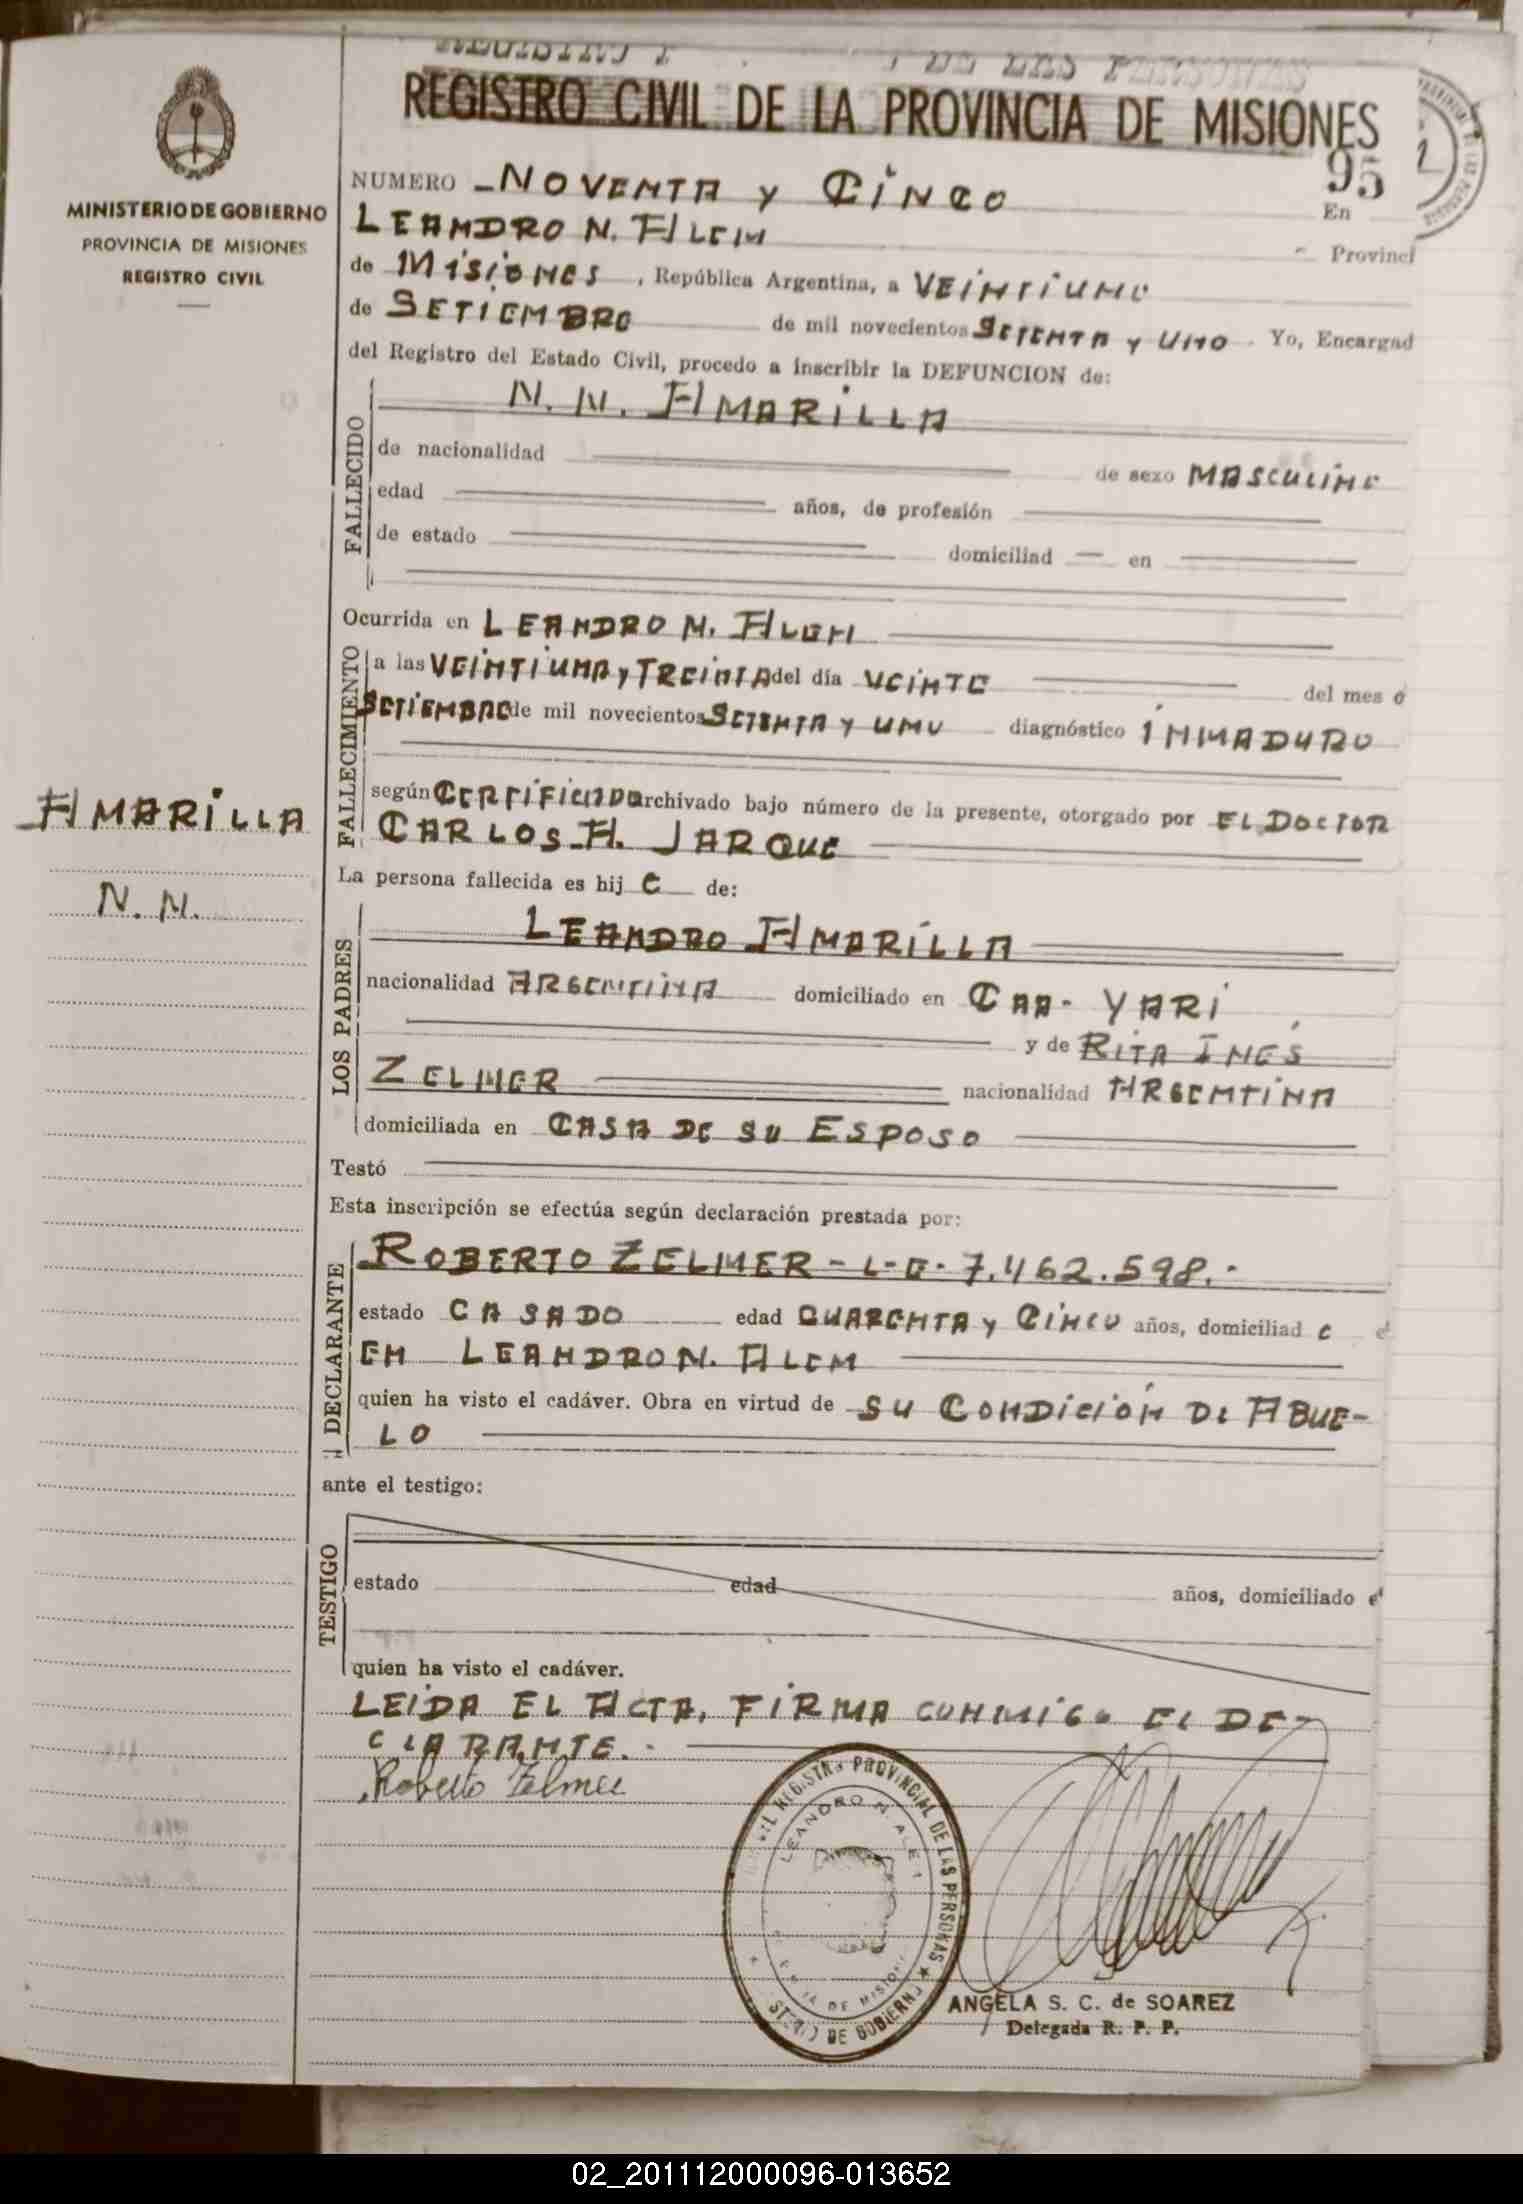 REGISTRO CIVIL DE LA PROVINCIA DE MISIONES
MINISTERIO DE GOBIERNO
PROVINCIA DE MISIONES
REGISTRO CIVIL
NUMERO - NOVENTA y CINCO 95
En
LEANDRO N. ALEM Provinci
de MISIONES, República Argentina, a VEINTIUNO
de SETIEMBRE de mil novecientos SETENTA y UNO. Yo, Encargad
del Registro del Estado Civil, procedo a inscribir la DEFUNCION de:
FALLECIDO
N. N. AMARILLA
de nacionalidad de sexo MASCULINO
edad años, de profesión
de estado domiciliad en
Ocurrida en LEANDRO N. ALEM
FALLECIMIENTO
a las VEINTIUNA y TREINTA del día VEINTE del mes d
SETIEMBRE de mil novecientos SETENTA y UNO diagnóstico INMADURO
según CERTIFICADO archivado bajo número de la presente, otorgado por EL DOCTOR
CARLOS A. JARQUE
AMARILLA
N. N.
La persona fallecida es hij O de:
LOS PADRES
LEANDRO AMARILLA
nacionalidad ARGENTINA domiciliado en CAA-YARI
y de RITA INES
ZELMER nacionalidad ARGENTINA
domiciliada en CASA DE SU ESPOSO
Testó
Esta inscripción se efectúa según declaración prestada por:
DECLARANTE
ROBERTO ZELMER - L-E- 7.462.598.-
estado CASADO edad CUARENTA y CINCO años, domiciliad O e
EN LEANDRO N. ALEM
quien ha visto el cadáver. Obra en virtud de SU CONDICIÓN DE ABUE-
LO
ante el testigo:
TESTIGO
estado edad años, domiciliado e
quien ha visto el cadáver.
LEIDA EL ACTA, FIRMA CONMIGO EL DE-
CLARANTE.-
Roberto Zelmer
REGISTRO PROVINCIAL DE LAS PERSONAS
LEANDRO N. ALEM
DE MISIONES
DE GOBIERNO
ANGELA S. C. de SOAREZ
Delegada R. P. P.
02_201112000096-013652